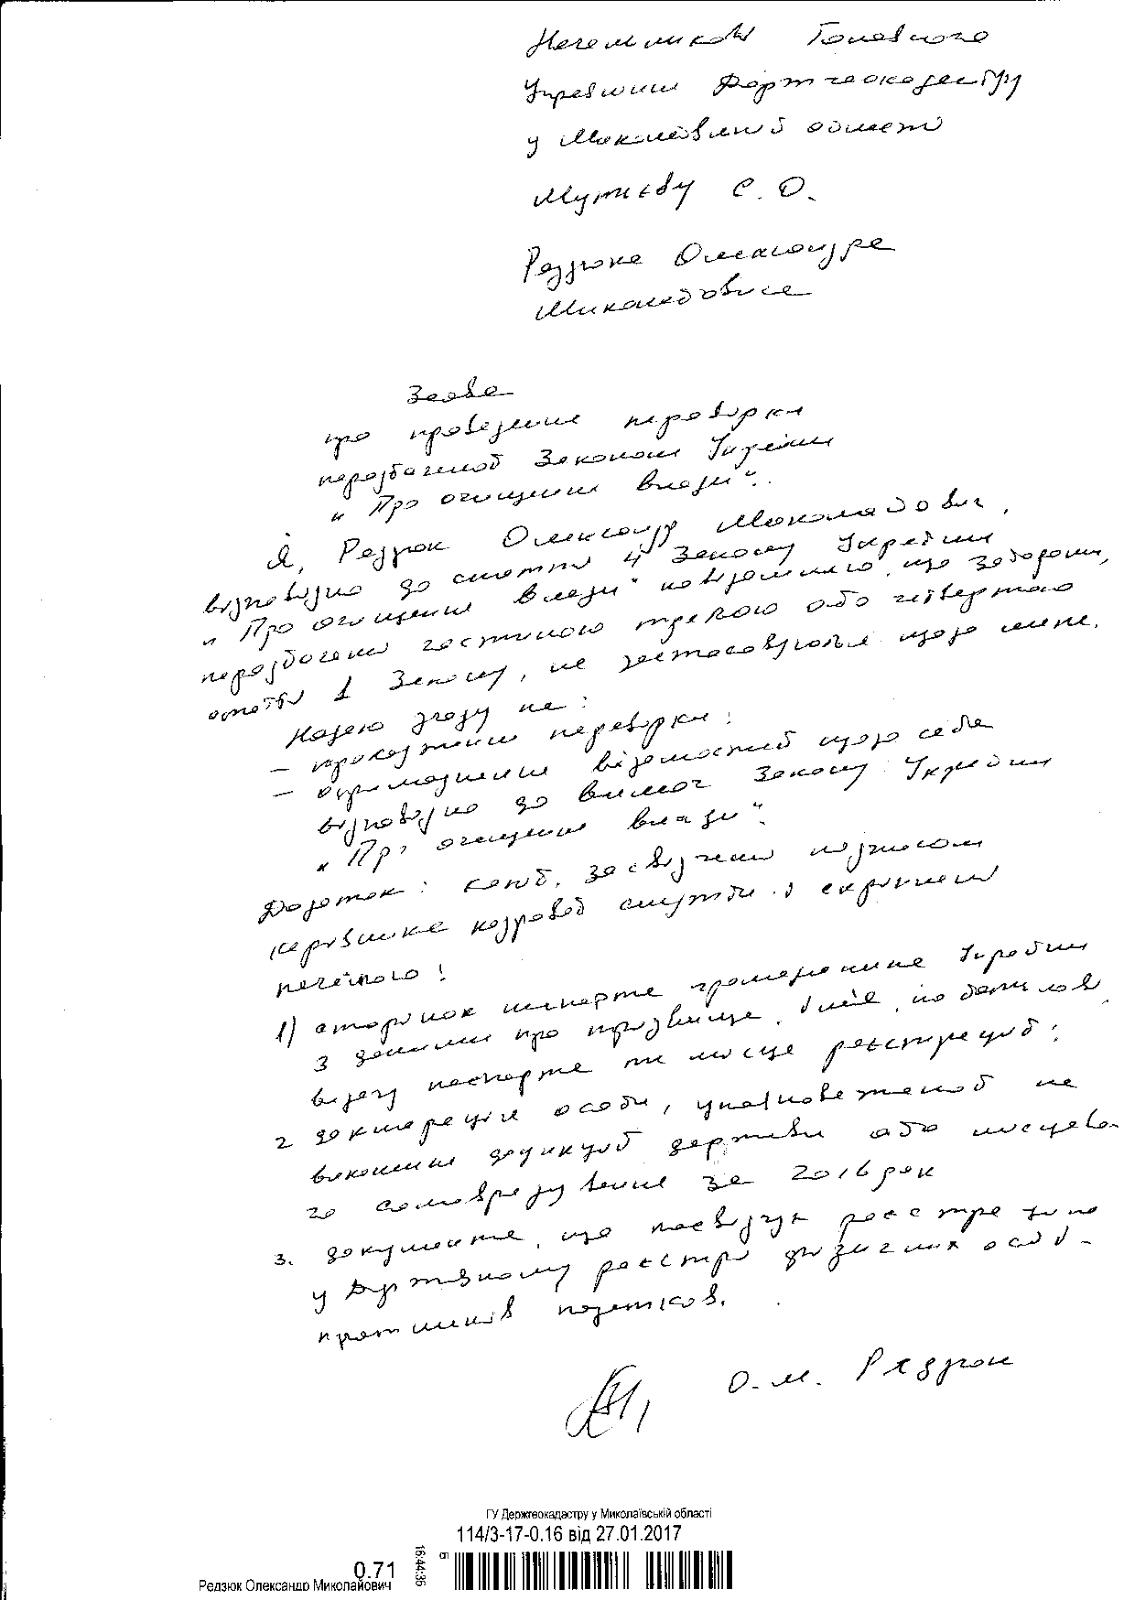 Начальникові Головного
Управління Держгеокадастру
у Миколаївській області
С. О.
Редзюка Олександра
Миколайовича
Заява
про проведення перевірки
передбаченої Законом України
"Про очищення влади".
Я, Редзюк Олександр Миколайович,
відповідно до статті 4 Закону України
"Про очищення влади" повідомляю, що заборони,
передбачені частиною третьою або четвертою
статті 1 Закону, не застосовуються щодо мене.
Надаю згоду на:
– проходження перевірки;
– оприлюднення відомостей щодо себе
відповідно до вимог Закону України
"Про очищення влади".
Додаток: копії, засвідчені підписом
керівника кадрової служби і скріплені
печаткою:
1) сторінок паспорта громадянина України
з даними про прізвище, ім'я, по батькові,
видачу паспорта та місце реєстрації;
2 декларація особи, уповноваженої на
виконання функцій держави або місцево-
го самоврядування за 2016 рік
3. документа, що посвідчує реєстрацію
у Державному реєстрі фізичних осіб-
платників податків.
О.М. Редзюк
ГУ Держгеокадастру у Миколаївській області
114/3-17-0.16 від 27.01.2017
16:44:36
0.71
Редзюк Олександр Миколайович